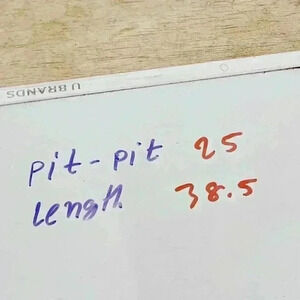 U BRANDS
pit-pit 25
Length 38.5